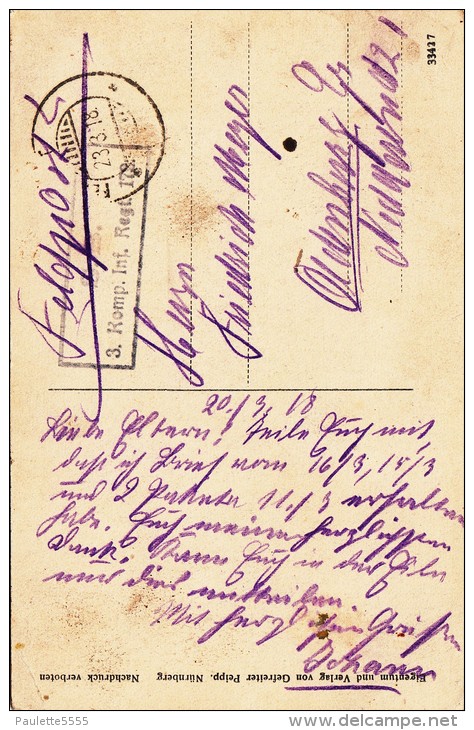 Feldpost
23.3.18
3. Komp. Inf. Regt.
Herrn
Friedrich Meyer
33427
20./3. 18
Liebe Eltern! Teile Euch mit,
daß ich Brief vom 16/3, 15/3
und 2 Pakete 11./3 erhalten
habe. Euch meinen herzlichsten
Dank. Kann Euch in der Eile
nur dies mitteilen.
Mit herzl Grüßen
Johann
Eigentum und Verlag von Gefreiter Peipp. Nürnberg Nachdruck verboten
Paulette5555
delcampe.net